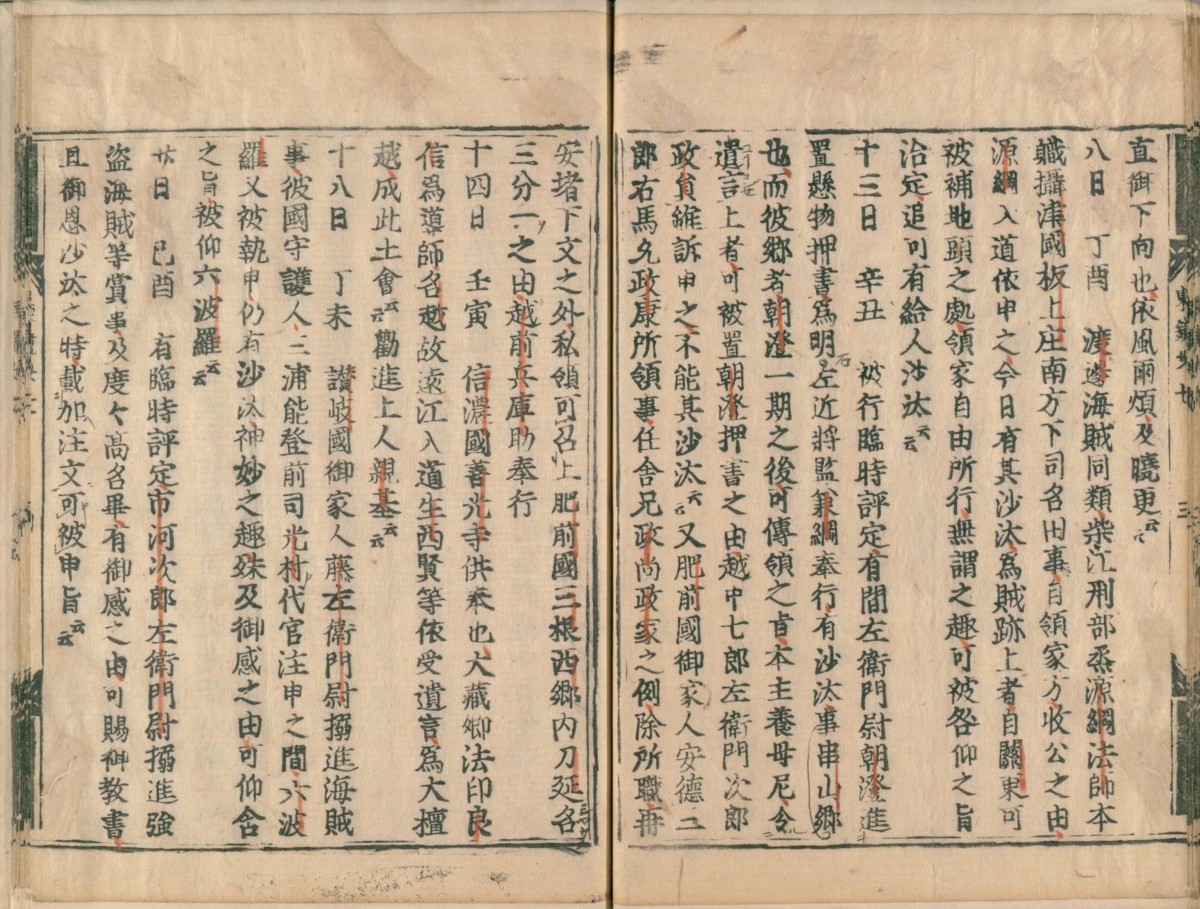 直御下向也依風雨煩及曉更云云
八日　丁酉　渡邊海賊同類柴江刑部烝源綱法師本
職攝津國板上庄南方下司名田事自領家方收公之由
源綱入道依申之今日有其沙汰為賊跡上者自關東可
被補地頭之處領家自由所行無謂之趣可被咎仰之旨
治定追可有給人沙汰云云
十三日　辛丑　被行臨時評定有間左衛門尉朝澄進
置懸物押書為明石左近將監兼綱奉行有沙汰事串山鄉
也而彼鄉者朝澄一期之後可傳領之旨本主養母尼令
遺言上者可被置朝澄押書之由越中七郎左衛門次郎
政員雖訴申之不能其沙汰云云又肥前國御家人安德三
郎右馬允政康所領事任舍兄政尚政家之例除所職并
安堵下文之外私領可召上肥前國三根西鄉內刀延名
三分一之由越前兵庫助奉行
十四日　壬寅　信濃國善光寺供養也大藏卿法印良
信為導師名越故遠江入道生西賢等依受遺言為大檀
越成此土會云云勸進上人親基云云
十八日　丁未　讃岐國御家人藤左衛門尉搦進海賊
事彼國守護人三浦能登前司光村代官注申之間六波
羅又被執申仍有沙汰神妙之趣殊及御感之由可仰含
之旨被仰六波羅云云
廿日　己酉　有臨時評定市河次郎左衛門尉搦進強
盜海賊等賞事及度々高名畢有御感之由可賜御教書
且御恩沙汰之時載加注文可被申旨云云